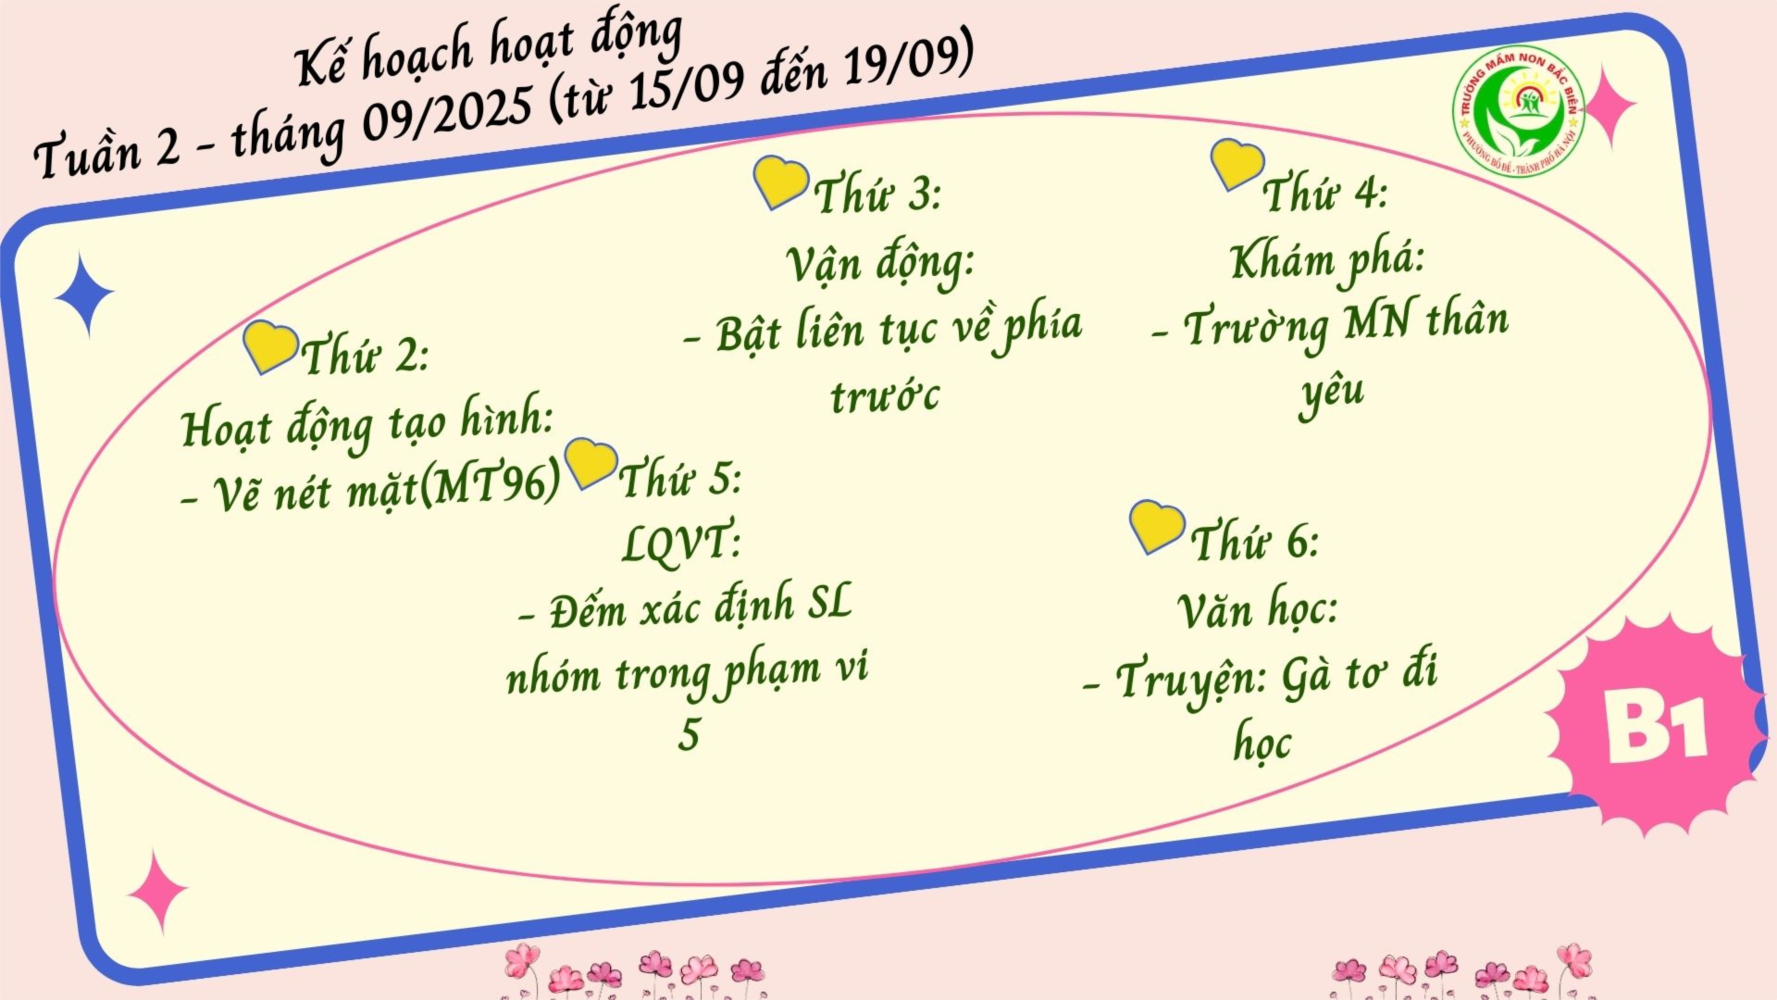 Kế hoạch hoạt động
Tuần 2 - tháng 09/2025 (từ 15/09 đến 19/09)
TRƯỜNG MẦM NON BẮC BIÊN
PHƯỜNG BỒ ĐỀ - THÀNH PHỐ HÀ NỘI
Thứ 2:
Hoạt động tạo hình:
- Vẽ nét mặt(MT96)
Thứ 3:
Vận động:
- Bật liên tục về phía
trước
Thứ 4:
Khám phá:
- Trường MN thân
yêu
Thứ 5:
LQVT:
- Đếm xác định SL
nhóm trong phạm vi
5
Thứ 6:
Văn học:
- Truyện: Gà tơ đi
học
B1